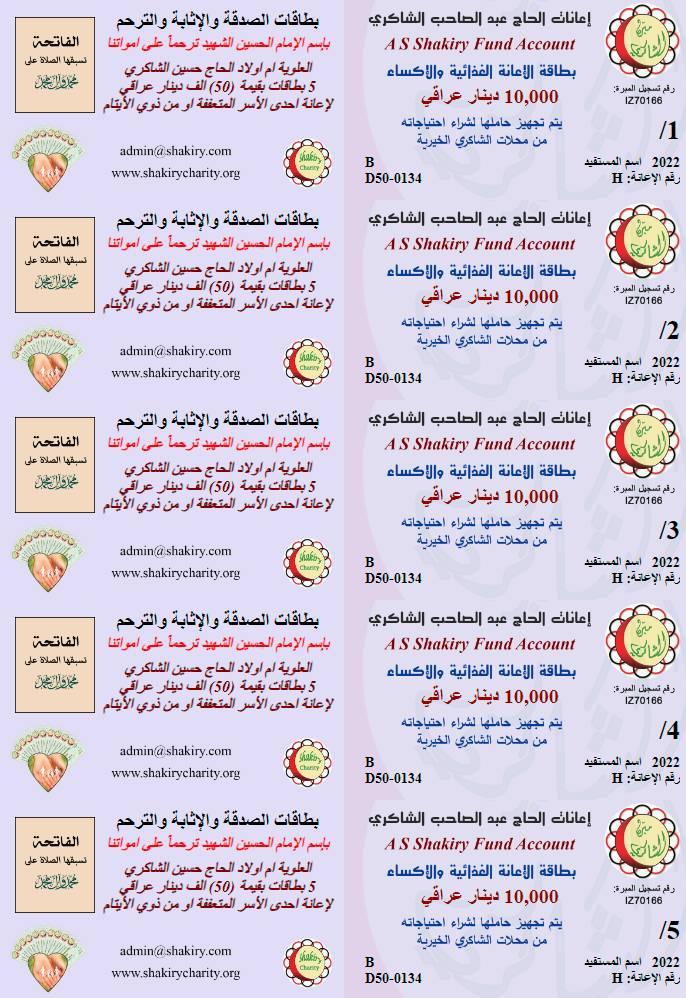 إعانات الحاج عبد الصاحب الشاكري
A S Shakiry Fund Account
بطاقة الأعانة الغذائية والأكساء
10,000 دينار عراقي
يتم تجهيز حاملها لشراء احتياجاته
من محلات الشاكري الخيرية
مبرة الشاكري
رقم تسجيل المبرة:
IZ70166
/1
2022 اسم المستفيد B
رقم الإعانة: H D50-0134
بطاقات الصدقة والإثابة والترحم
بإسم الإمام الحسين الشهيد ترحماً على امواتنا
العلوية ام اولاد الحاج حسين الشاكري
5 بطاقات بقيمة (50) الف دينار عراقي
لإعانة احدى الأسر المتعففة او من ذوي الأيتام
الفاتحة
تسبقها الصلاة على
محمد وآل محمد
admin@shakiry.com
www.shakirycharity.org
Shakiry
Charity
إعانات الحاج عبد الصاحب الشاكري
A S Shakiry Fund Account
بطاقة الأعانة الغذائية والأكساء
10,000 دينار عراقي
يتم تجهيز حاملها لشراء احتياجاته
من محلات الشاكري الخيرية
مبرة الشاكري
رقم تسجيل المبرة:
IZ70166
/2
2022 اسم المستفيد B
رقم الإعانة: H D50-0134
بطاقات الصدقة والإثابة والترحم
بإسم الإمام الحسين الشهيد ترحماً على امواتنا
العلوية ام اولاد الحاج حسين الشاكري
5 بطاقات بقيمة (50) الف دينار عراقي
لإعانة احدى الأسر المتعففة او من ذوي الأيتام
الفاتحة
تسبقها الصلاة على
محمد وآل محمد
admin@shakiry.com
www.shakirycharity.org
Shakiry
Charity
إعانات الحاج عبد الصاحب الشاكري
A S Shakiry Fund Account
بطاقة الأعانة الغذائية والأكساء
10,000 دينار عراقي
يتم تجهيز حاملها لشراء احتياجاته
من محلات الشاكري الخيرية
مبرة الشاكري
رقم تسجيل المبرة:
IZ70166
/3
2022 اسم المستفيد B
رقم الإعانة: H D50-0134
بطاقات الصدقة والإثابة والترحم
بإسم الإمام الحسين الشهيد ترحماً على امواتنا
العلوية ام اولاد الحاج حسين الشاكري
5 بطاقات بقيمة (50) الف دينار عراقي
لإعانة احدى الأسر المتعففة او من ذوي الأيتام
الفاتحة
تسبقها الصلاة على
محمد وآل محمد
admin@shakiry.com
www.shakirycharity.org
Shakiry
Charity
إعانات الحاج عبد الصاحب الشاكري
A S Shakiry Fund Account
بطاقة الأعانة الغذائية والأكساء
10,000 دينار عراقي
يتم تجهيز حاملها لشراء احتياجاته
من محلات الشاكري الخيرية
مبرة الشاكري
رقم تسجيل المبرة:
IZ70166
/4
2022 اسم المستفيد B
رقم الإعانة: H D50-0134
بطاقات الصدقة والإثابة والترحم
بإسم الإمام الحسين الشهيد ترحماً على امواتنا
العلوية ام اولاد الحاج حسين الشاكري
5 بطاقات بقيمة (50) الف دينار عراقي
لإعانة احدى الأسر المتعففة او من ذوي الأيتام
الفاتحة
تسبقها الصلاة على
محمد وآل محمد
admin@shakiry.com
www.shakirycharity.org
Shakiry
Charity
إعانات الحاج عبد الصاحب الشاكري
A S Shakiry Fund Account
بطاقة الأعانة الغذائية والأكساء
10,000 دينار عراقي
يتم تجهيز حاملها لشراء احتياجاته
من محلات الشاكري الخيرية
مبرة الشاكري
رقم تسجيل المبرة:
IZ70166
/5
2022 اسم المستفيد B
رقم الإعانة: H D50-0134
بطاقات الصدقة والإثابة والترحم
بإسم الإمام الحسين الشهيد ترحماً على امواتنا
العلوية ام اولاد الحاج حسين الشاكري
5 بطاقات بقيمة (50) الف دينار عراقي
لإعانة احدى الأسر المتعففة او من ذوي الأيتام
الفاتحة
تسبقها الصلاة على
محمد وآل محمد
admin@shakiry.com
www.shakirycharity.org
Shakiry
Charity